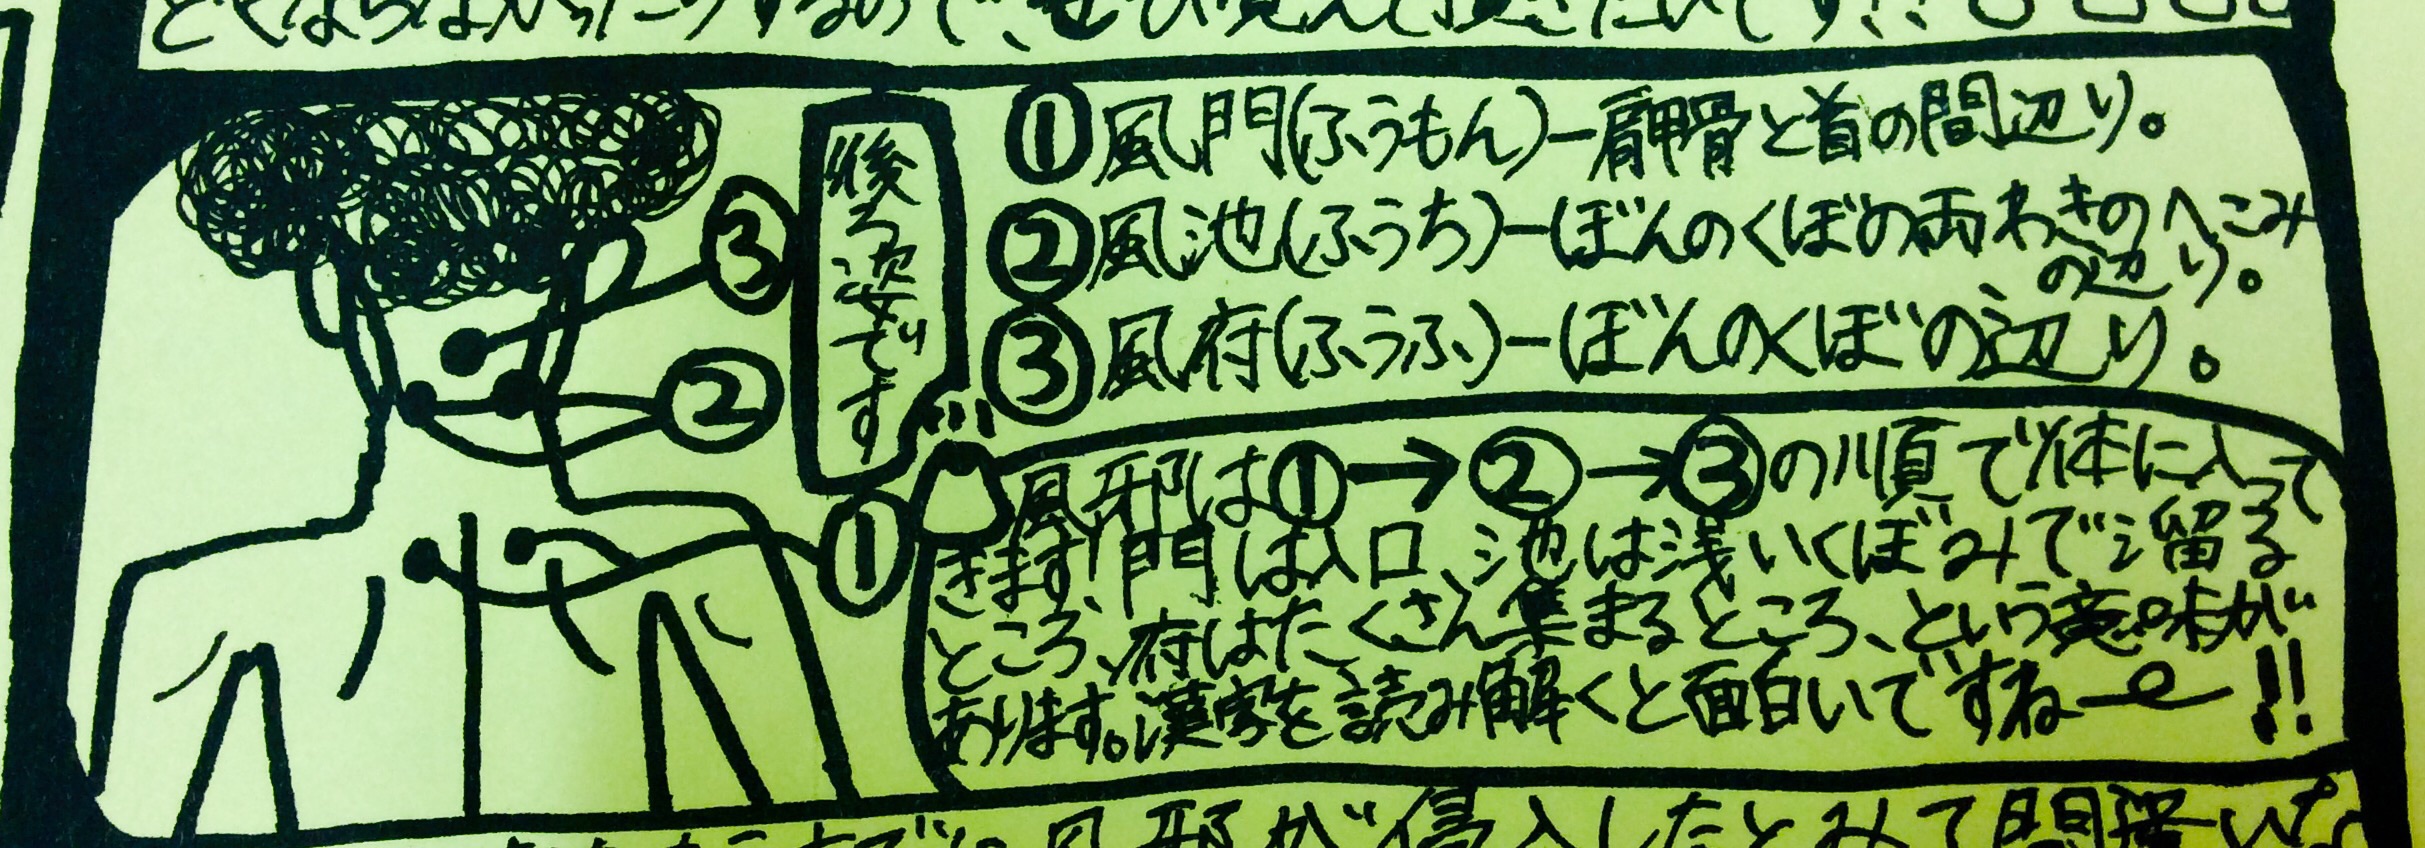 後ろ姿です
①風門(ふうもん)ー肩甲骨と首の間辺り。
②風池(ふうち)ーぼんのくぼの両わきのへこみ
の辺り。
③風府(ふうふ)ーぼんのくぼの辺り。
③
②
①
風邪は①→②→③の順で体に入って
きます!門は入口、池は浅いくぼみで溜る
ところ、府はたくさん集まるところ、という意味が
あります。漢字を読み解くと面白いですねー!!
風邪が侵入したとみて間違い